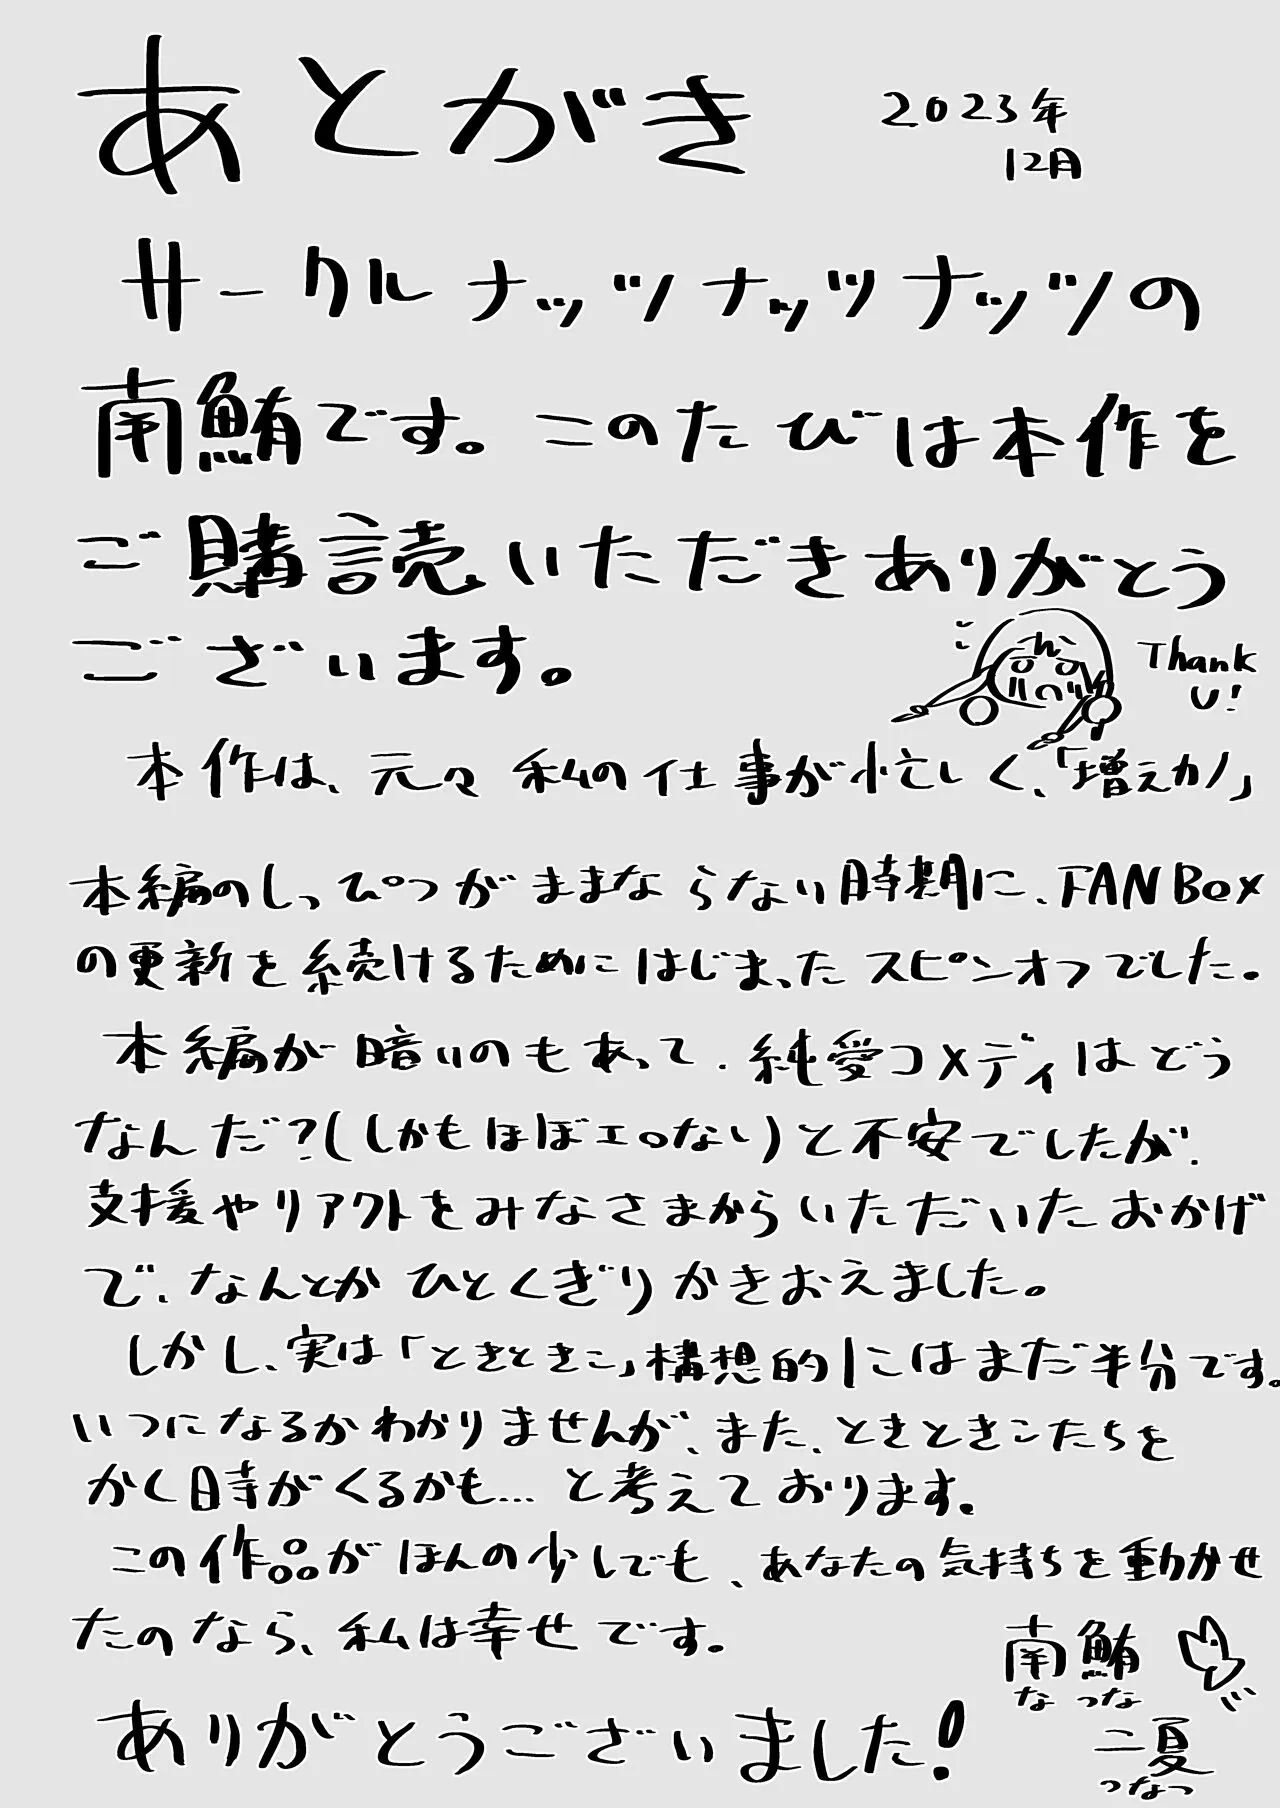 あとがき
2023年
12月
サークルナッツナッツナッツの
南鮪です。このたびは本作を
ご購読いただきありがとう
ございます。
Thank
U!
本作は、元々私の仕事が忙しく、「増えカノ」
本編のしっぴつがままならない時期に、FANBox
の更新を続けるためにはじまったスピンオフでした。
本編が暗いのもあって、純愛コメディはどう
なんだ?(しかもほぼエロない)と不安でしたが、
支援やリアクトをみなさまからいただいたおかげ
で、なんとかひとくぎりかきおえました。
しかし、実は「ときときこ」構想的にはまだ半分です。
いつになるかわかりませんが、また、ときときこたちを
かく時がくるかも…と考えております。
この作品がほんの少しでも、あなたの気持ちを動かせ
たのなら、私は幸せです。
ありがとうございました!
南鮪
な つな
二夏
つなつ